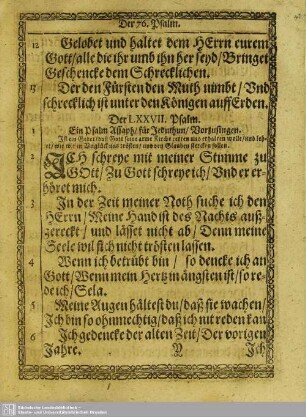 Der 76. Psalm.
12 Gelobet und haltet dem HErrn eurem
Gott/alle die jhr umb jhn her seyd/Bringet
Geschencke dem Schrecklichen.
13 Der den Fürsten den Muth nimbt/ Und
schrecklich ist unter den Königen auff Erden.
Der LXXVII. Psalm.
1 Ein Psalm Assaph/ für Jeduthun/ Vorzusingen.
2 ICH schreye mit meiner Stimme zu
GOtt/ Zu Gott schreye ich/ Und er er-
höret mich.
3 In der Zeit meiner Noth suche ich den
HErrn/ Meine Hand ist des Nachts auß-
gereckt/ und lässet nicht ab/ Denn meine
Seele wil sich nicht trösten lassen.
4 Wenn ich betrübt bin/ so dencke ich an
Gott/ Wenn mein Hertz in ängsten ist/ so re-
de ich/ Sela.
5 Meine Augen hältest du/ daß sie wachen/
Ich bin so ohnmechtig/ daß ich nit reden kan
6 Ich gedencke der alten Zeit/ Der vorigen
Jahre. Ich